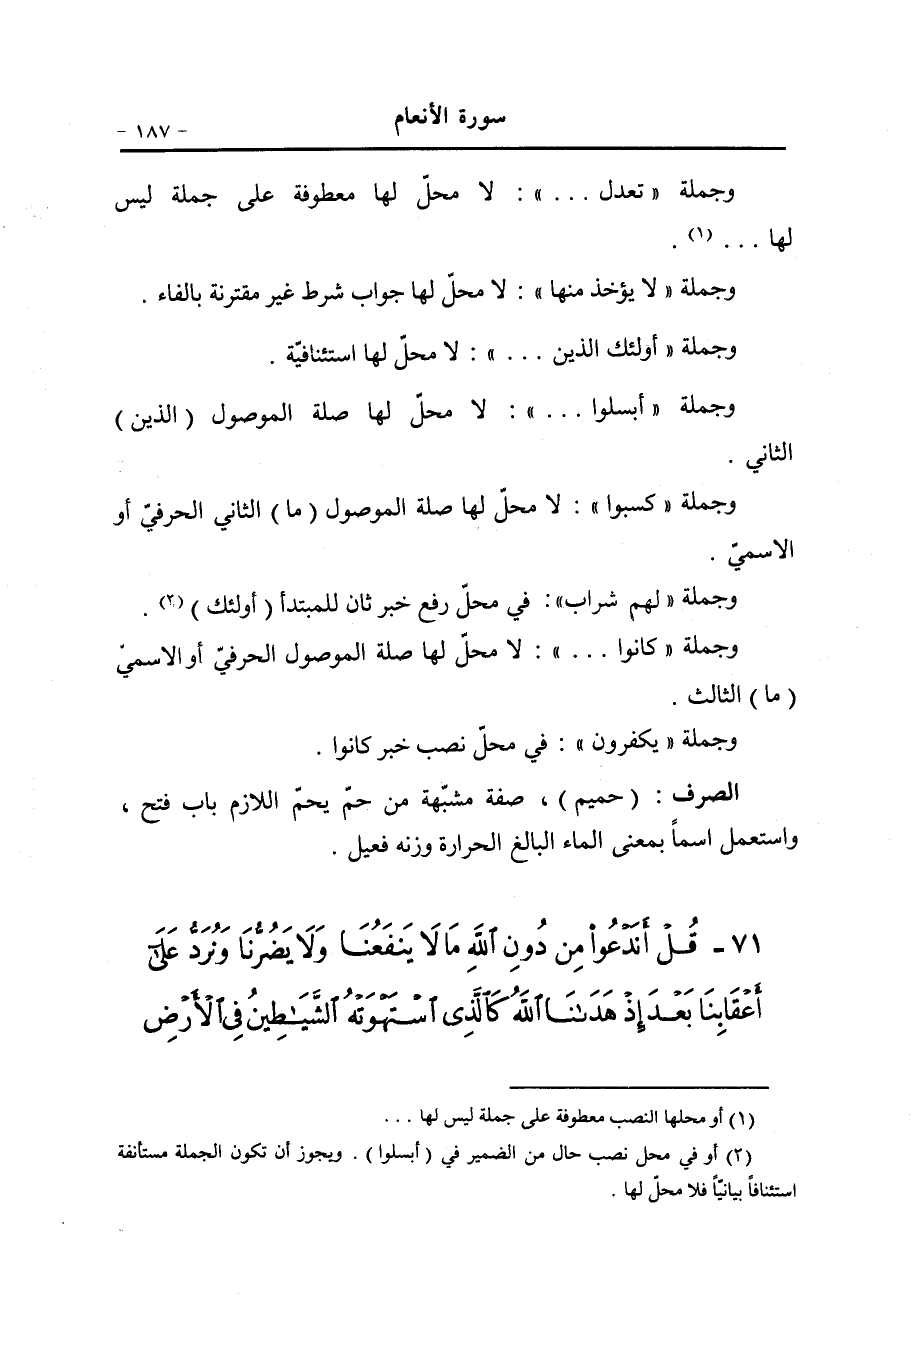 سورة الأنعام
- ١٨٧ -
وجملة « تعدل . . . » : لا محلّ لها معطوفة على جملة ليس
لها . . . (١) .
وجملة « لا يؤخذ منها » : لا محلّ لها جواب شرط غير مقترنة بالفاء .
وجملة « أولئك الذين . . . » : لا محلّ لها استئنافيّة .
وجملة « أبسلوا . . . » : لا محلّ لها صلة الموصول ( الذين )
الثاني .
وجملة « كسبوا » : لا محلّ لها صلة الموصول ( ما ) الثاني الحرفيّ أو
الاسميّ .
وجملة « لهم شراب» : في محلّ رفع خبر ثان للمبتدأ ( أولئك ) (٢) .
وجملة « كانوا . . . » : لا محلّ لها صلة الموصول الحرفيّ أو الاسميّ
( ما ) الثالث .
وجملة « يكفرون » : في محلّ نصب خبر كانوا .
الصرف : ( حميم ) ، صفة مشبّهة من حمّ يحمّ اللازم باب فتح ،
واستعمل اسماً بمعنى الماء البالغ الحرارة وزنه فعيل .
٧١ - قُلْ أَنَدْعُوا۟ مِن دُونِ ٱللَّهِ مَا لَا يَنفَعُنَا وَلَا يَضُرُّنَا وَنُرَدُّ عَلَىٰٓ
أَعْقَابِنَا بَعْدَ إِذْ هَدَىٰنَا ٱللَّهُ كَٱلَّذِى ٱسْتَهْوَتْهُ ٱلشَّيَـٰطِينُ فِى ٱلْأَرْضِ
(١) أو محلها النصب معطوفة على جملة ليس لها . . .
(٢) أو في محل نصب حال من الضمير في ( أبسلوا ) . ويجوز أن تكون الجملة مستأنفة
استئنافاً بيانيّاً فلا محلّ لها .